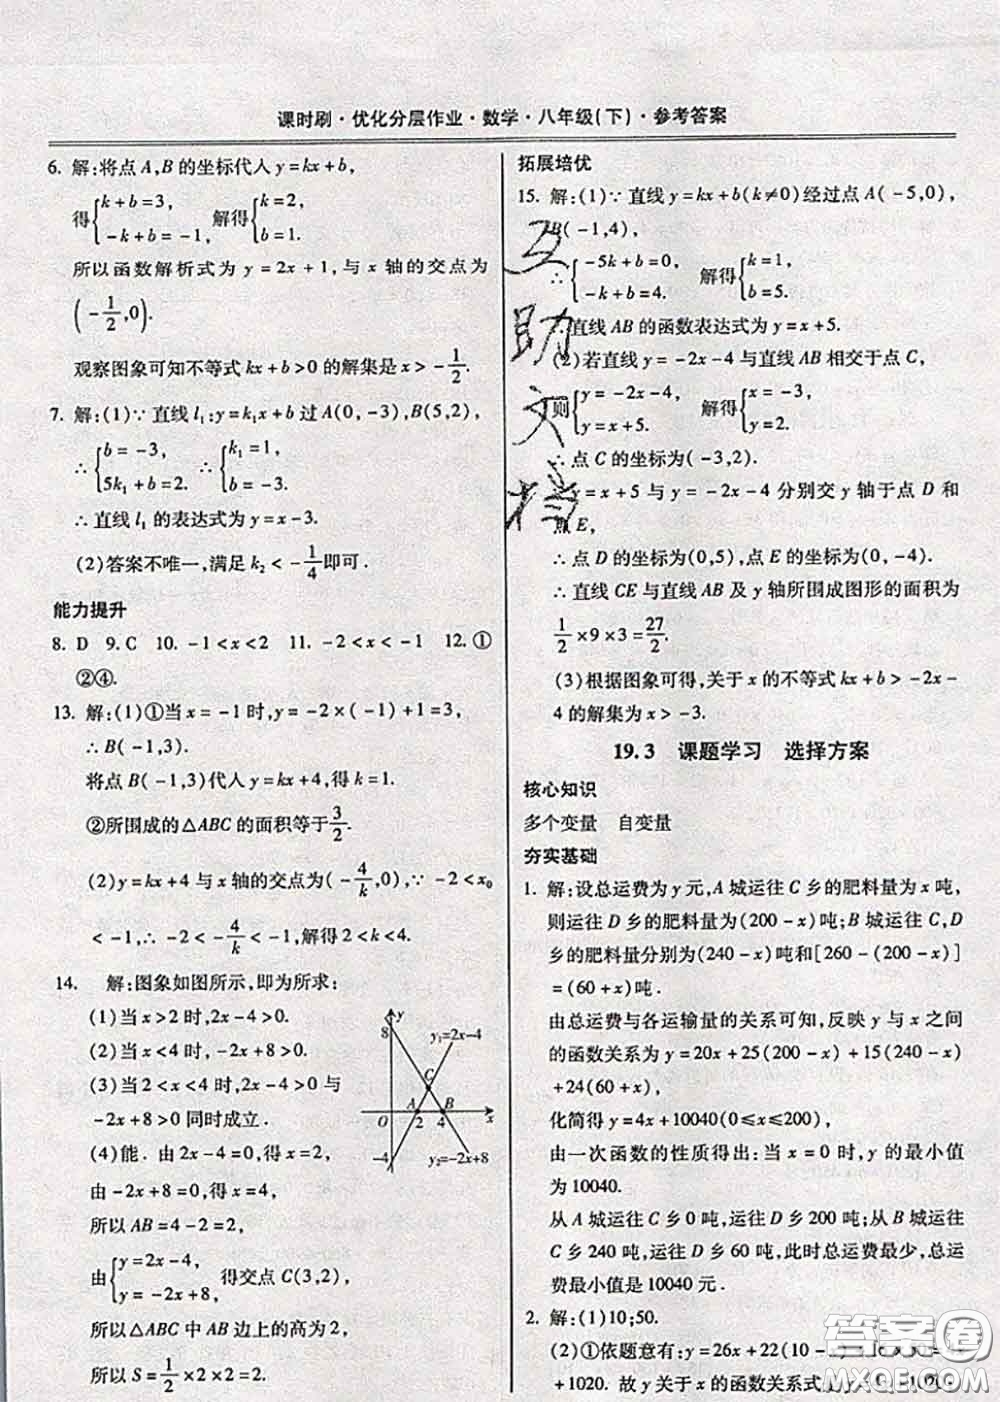 课时刷·优化分层作业·数学·八年级(下)·参考答案
6. 解:将点A,B的坐标代入y=kx+b,
得{k+b=3, -k+b=-1, 解得{k=2, b=1.
所以函数解析式为y=2x+1,与x轴的交点为
(-1/2,0).
观察图象可知不等式kx+b>0的解集是x>-1/2.
7. 解:(1)∵直线l₁:y=k₁x+b过A(0,-3),B(5,2),
∴{b=-3, 5k₁+b=2. ∴{k₁=1, b=-3.
∴直线l₁的表达式为y=x-3.
(2)答案不唯一,满足k₂<-1/4即可.
能力提升
8. D 9. C 10. -1<x<2 11. -2<x<-1 12. ①
②④.
13. 解:(1)①当x=-1时,y=-2×(-1)+1=3,
∴B(-1,3).
将点B(-1,3)代入y=kx+4,得k=1.
②所围成的△ABC的面积等于3/2.
(2)y=kx+4与x轴的交点为(-4/k,0),∵-2<x₀
<-1,∴-2<-4/k<-1,解得2<k<4.
14. 解:图象如图所示,即为所求:
(1)当x>2时,2x-4>0.
(2)当x<4时,-2x+8>0.
(3)当2<x<4时,2x-4>0与
-2x+8>0同时成立.
(4)能. 由2x-4=0,得x=2,
由-2x+8=0,得x=4,
所以AB=4-2=2,
由{y=2x-4, y=-2x+8, 得交点C(3,2),
所以△ABC中AB边上的高为2,
所以S=1/2×2×2=2.
y
8
y₁=2x-4
C
A B
O 2 4 x
-4
y₂=-2x+8
拓展培优
15. 解:(1)∵直线y=kx+b(k≠0)经过点A(-5,0),
B(-1,4),
∴{-5k+b=0, -k+b=4. 解得{k=1, b=5.
∴直线AB的函数表达式为y=x+5.
(2)若直线y=-2x-4与直线AB相交于点C,
则{y=-2x-4, y=x+5. 解得{x=-3, y=2.
∴点C的坐标为(-3,2).
y=x+5与y=-2x-4分别交y轴于点D和
点E,
∴点D的坐标为(0,5),点E的坐标为(0,-4).
∴直线CE与直线AB及y轴所围成图形的面积为
1/2×9×3=27/2.
(3)根据图象可得,关于x的不等式kx+b>-2x-
4的解集为x>-3.
19.3 课题学习 选择方案
核心知识
多个变量 自变量
夯实基础
1. 解:设总运费为y元,A城运往C乡的肥料量为x吨,
则运往D乡的肥料量为(200-x)吨;B城运往C,D
乡的肥料量分别为(240-x)吨和[260-(200-x)]
=(60+x)吨.
由总运费与各运输量的关系可知,反映y与x之间
的函数关系为y=20x+25(200-x)+15(240-x)
+24(60+x),
化简得y=4x+10040(0≤x≤200),
由一次函数的性质得出:当x=0时,y的最小值
为10040.
从A城运往C乡0吨,运往D乡200吨;从B城运往
C乡240吨,运往D乡60吨,此时总运费最少,总运
费最小值是10040元.
2. 解:(1)10;50.
(2)①依题意有:y=26x+22(10-
+1020. 故y关于x的函数关系式
互
助
文
档
答案卷
MXQE.COM